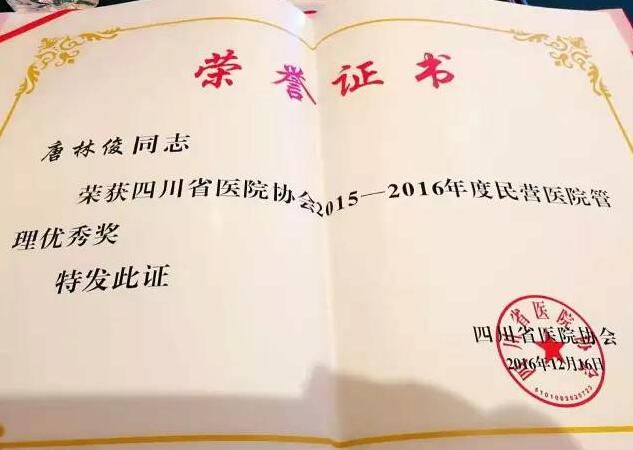 荣誉证书
唐林俊同志
荣获四川省医院协会2015—2016年度民营医院管
理优秀奖
特发此证
四川省医院协会
2016年12月16日
四川省医院协会